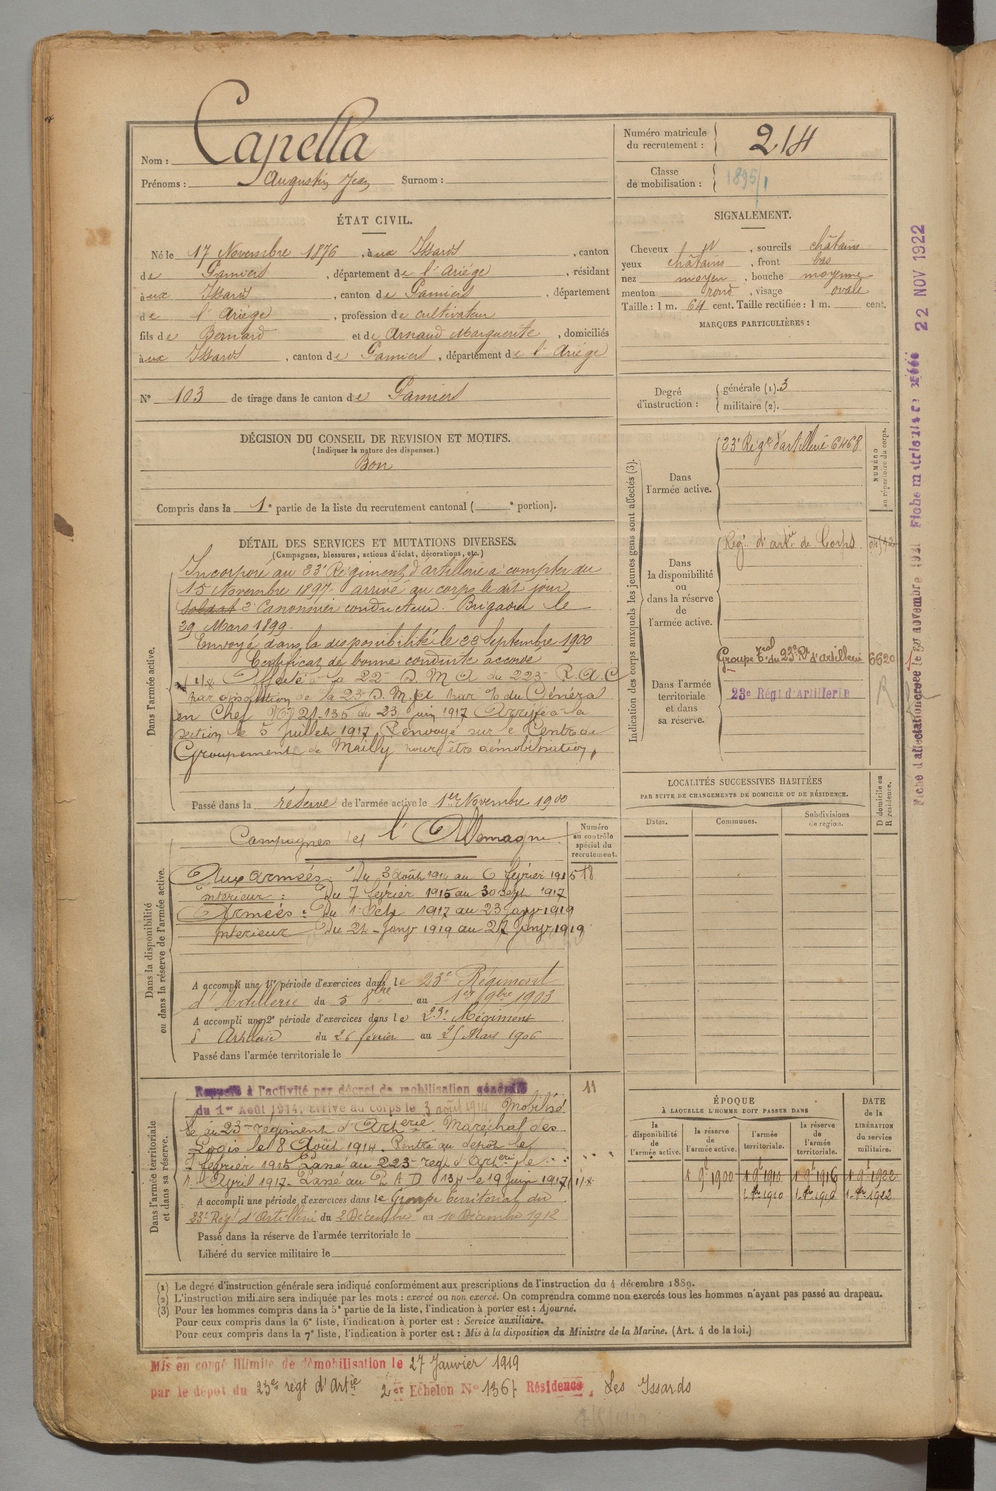 Nom : Capella
Prénoms : Augustin Jean Surnom :
Numéro matricule du recrutement : 214
Classe de mobilisation : 1896/1
ÉTAT CIVIL.
Né le 17 Novembre 1876, à ux Issards, canton
de Pamiers, département de l'Ariège, résidant
à ux Issards, canton de Pamiers, département
de l'Ariège, profession de cultivateur
fils de Bernard et de Arnaud Marguerite, domiciliés
à ux Issards, canton de Pamiers, département de l'Ariège
N° 103 de tirage dans le canton de Pamiers
SIGNALEMENT.
Cheveux, sourcils châtains
yeux châtains, front bas
nez moyen, bouche moyenne
menton rond, visage ovale
Taille : 1 m. 64 cent. Taille rectifiée : 1 m. cent.
MARQUES PARTICULIÈRES :
Degré d'instruction : générale (1). 3
militaire (2).
DÉCISION DU CONSEIL DE REVISION ET MOTIFS.
(Indiquer la nature des dispenses.)
Bon
Compris dans la 1e partie de la liste du recrutement cantonal ( e portion).
DÉTAIL DES SERVICES ET MUTATIONS DIVERSES.
(Campagnes, blessures, actions d'éclat, décorations, etc.)
Dans l'armée active.
Incorporé au 23e Régiment d'artillerie à compter du
15 Novembre 1897. arrivé au corps le dit jour
soldat 2e Canonnier conducteur. Brigadier le
29 Mars 1899.
Envoyé dans la disponibilité le 23 Septembre 1900
Certificat de bonne conduite accordé
Affecté à la 22e D.M.A du 223e R.A.C
par du Général
en Chef N° 21.135 du 23 juin 1917 Arrivé à la
section le 5 juillet 1917. Renvoyé sur le Centre de
Groupement de Mailly pour être démobilisation,
Passé dans la réserve de l'armée active le 1er Novembre 1900
Indication des corps auxquels les jeunes gens sont affectés (3).
NUMÉRO au répertoire du corps.
Dans l'armée active.
23e Régt d'artillerie 6468
Dans la disponibilité ou dans la réserve de l'armée active.
Régt d'artie de Corps
Dans l'armée territoriale et dans sa réserve.
Groupe trial du 23e Rt d'artillerie 6620
23e Régt d'Artillerie
22 NOV 1922
LOCALITÉS SUCCESSIVES HABITÉES
PAR SUITE DE CHANGEMENTS DE DOMICILE OU DE RÉSIDENCE.
Dates. Communes. Subdivisions de région. D domicile ou R résidence.
Dans la disponibilité ou dans la réserve de l'armée active.
Numéro au contrôle spécial du recrutement.
Campagnes et l'Allemagne
Aux armées : Du 3 août 1914 au 6 février 1915
518
intérieur : Du 7 février 1915 au 30 Sept 1917
Armées : Du 1 Octe 1917 au 23 Janv 1919
intérieur Du 24 Janv 1919 au 27 Janv 1919
A accompli une 1re période d'exercices dans le 23e Régiment
d'Artillerie du 5 8bre au 1er 9bre 1903
A accompli une 2e période d'exercices dans le 23e Régiment
d'Artillerie du 26 février au 25 Mars 1906
Passé dans l'armée territoriale le
Dans l'armée territoriale et dans sa réserve.
11
Rappelé à l'activité par décret de mobilisation générale
du 1er Août 1914, arrivé au corps le 3 août 1914 Mobilisé
le au 23e régiment d'Artierie Maréchal des
Logis le 8 Août 1914. Rentré au dépôt le
7 février 1915 Passé au 223e régt d'Artie le
1er Avril 1917. Passé au P.A.D. 134 le 19 juin 1917
A accompli une période d'exercices dans le groupe territorial du
23e Régt d'Artillerie du 2 Décembre au 10 Décembre 1912
Passé dans la réserve de l'armée territoriale le
Libéré du service militaire le
ÉPOQUE
À LAQUELLE L'HOMME DOIT PASSER DANS
la disponibilité de l'armée active. la réserve de l'armée active. l'armée territoriale. la réserve de l'armée territoriale.
DATE de la LIBÉRATION du service militaire.
1 9e 1900 1 9e 1910 1 9e 1916 1 9e 1922
1. 8re 1910 1. 8re 1916 1. 8re 1922
(1) Le degré d'instruction générale sera indiqué conformément aux prescriptions de l'instruction du 4 décembre 1889.
(2) L'instruction militaire sera indiquée par les mots : exercé ou non exercé. On comprendra comme non exercés tous les hommes n'ayant pas passé au drapeau.
(3) Pour les hommes compris dans la 5e partie de la liste, l'indication à porter est : Ajourné.
Pour ceux compris dans la 6e liste, l'indication à porter est : Service auxiliaire.
Pour ceux compris dans la 7e liste, l'indication à porter est : Mis à la disposition du Ministre de la Marine. (Art. 4 de la loi.)
Mis en congé illimité de démobilisation le 27 Janvier 1919
par le dépôt du 23e régt d'Artie 2er Echelon N° 1367 Résidence, Les Issards